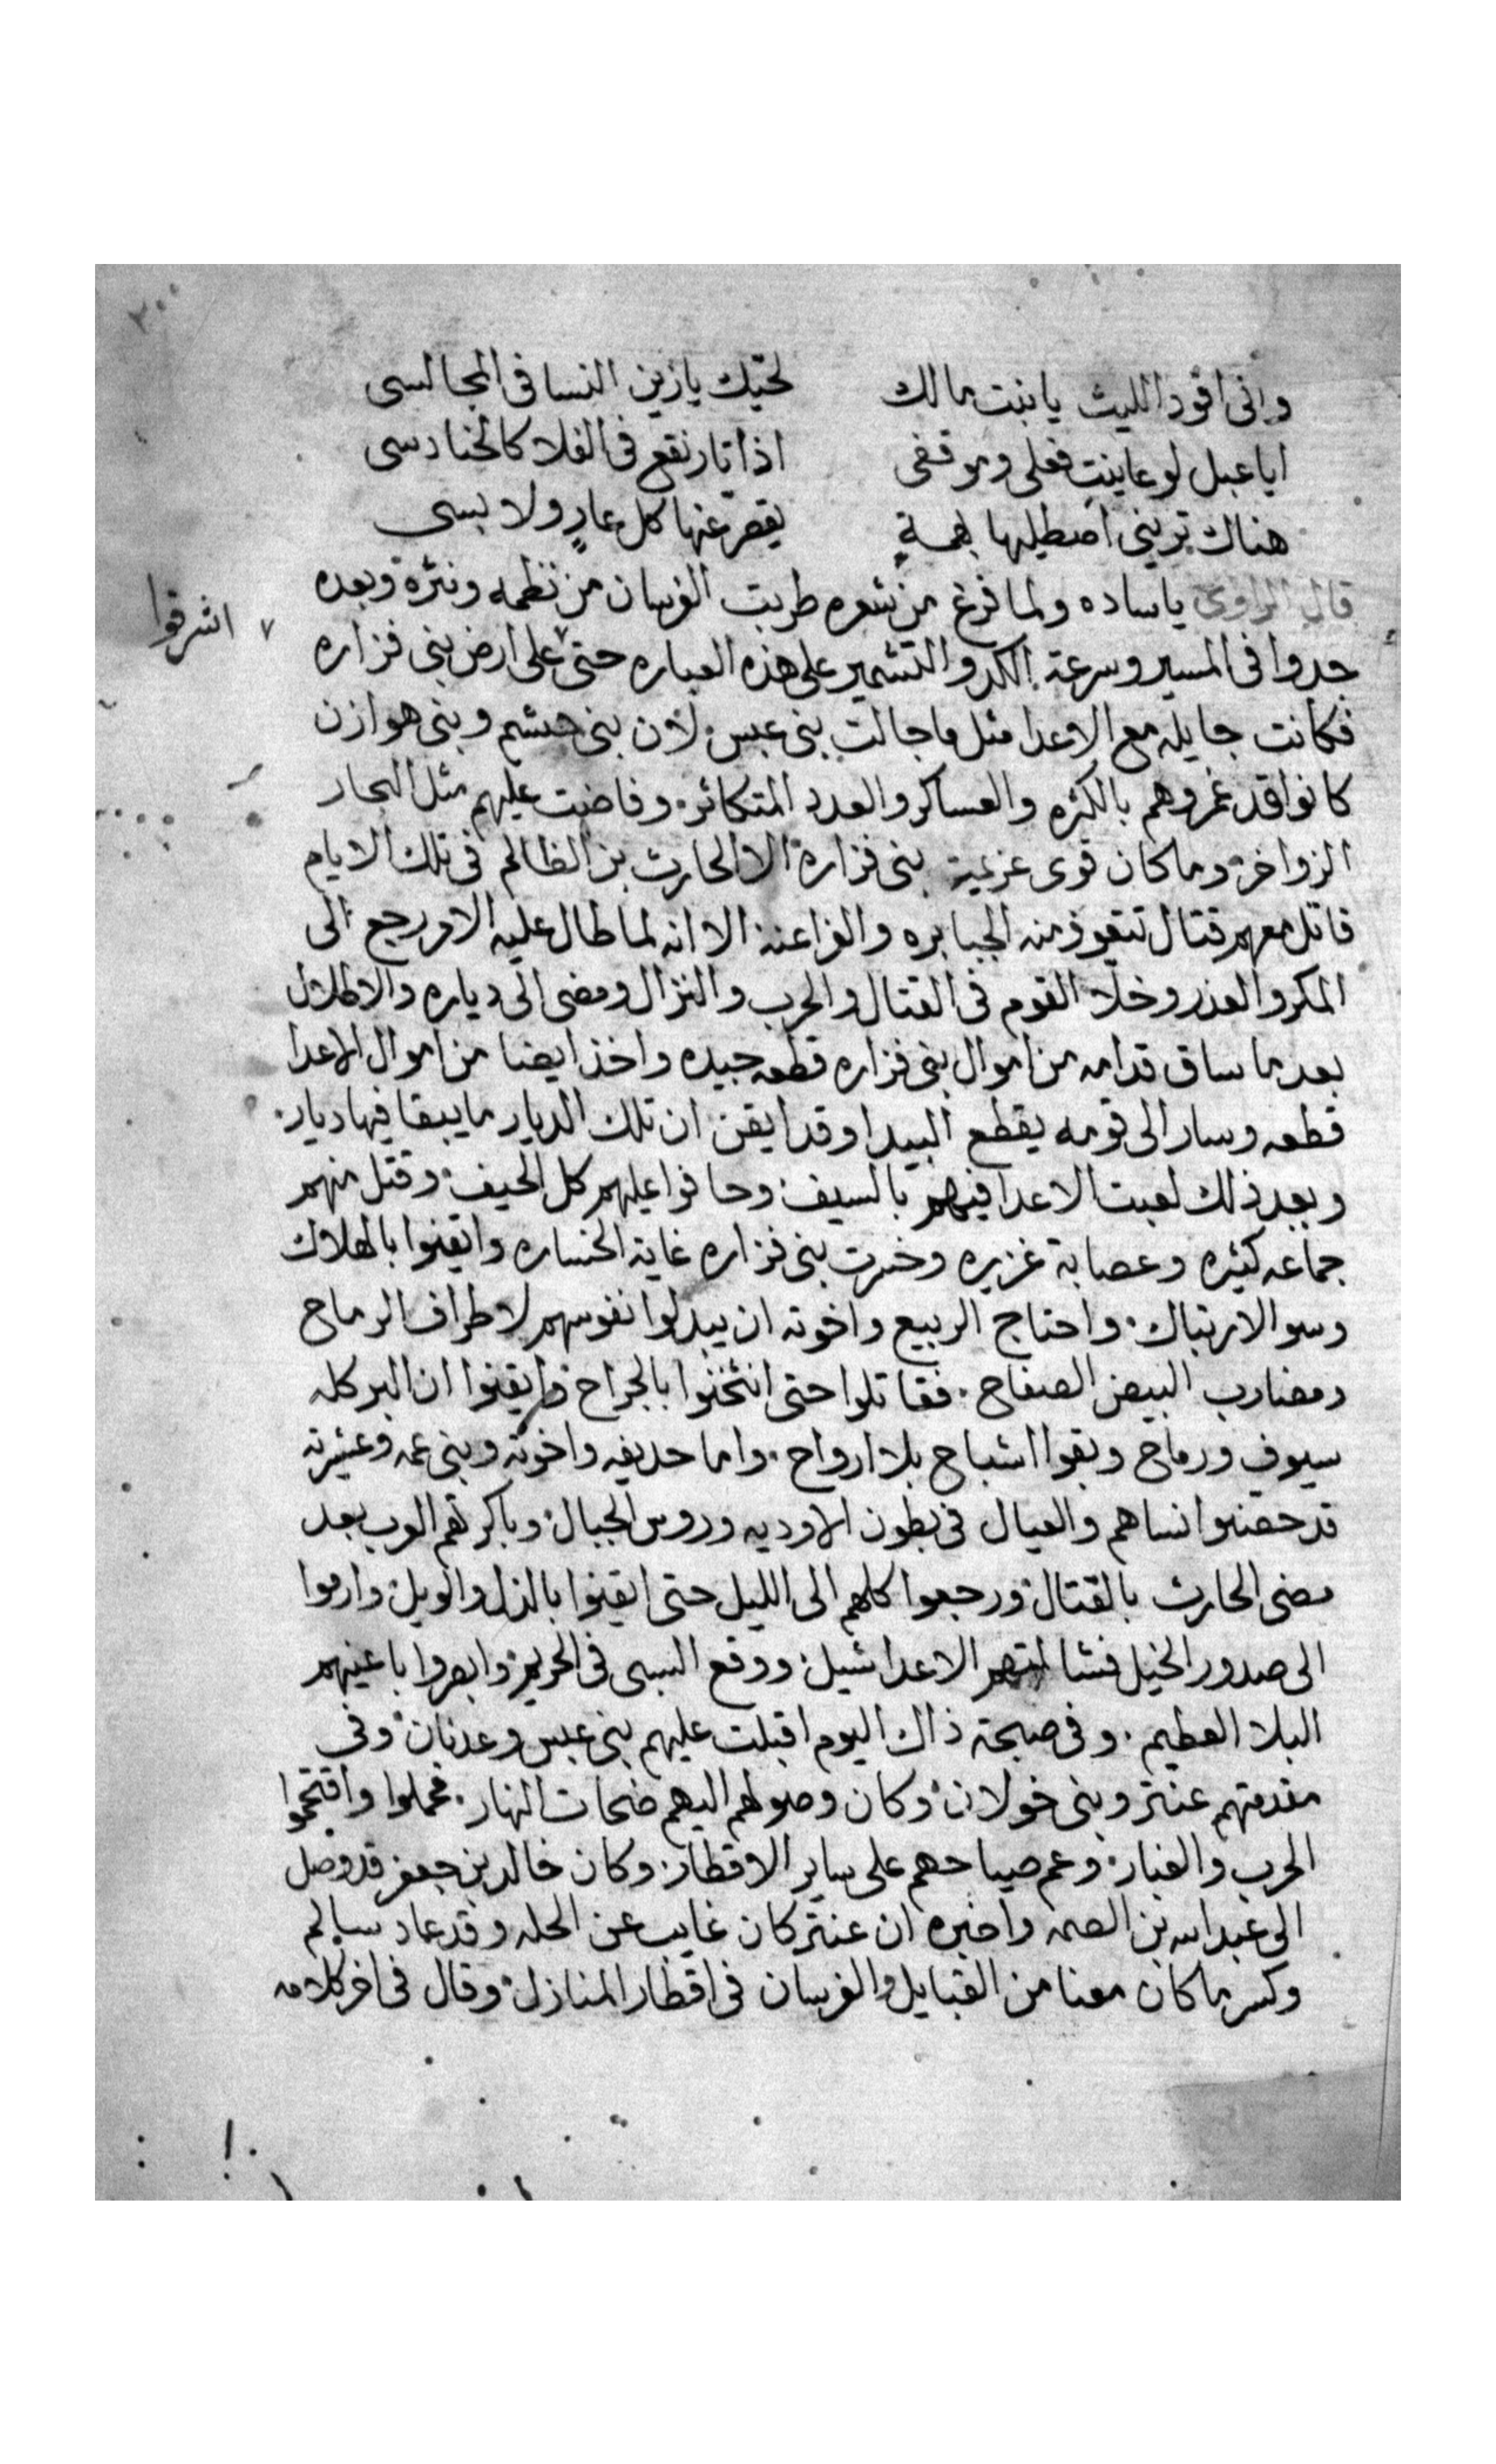 وانى اقود الليث يا بنت مالك لحيّك يا زين النسا فى المجالسى
ايا عبل لو عاينتِ فعلى وموقفى اذا ثار نقع فى الفلا كالحنادسى
هناك ترينى اصطليها بهمةٍ يقصّر عنها كل عارٍ ولا بسى
قال الراوى يا ساده ولما فرغ من شعره طربت الفرسان من نظمه ونثره وبعده
جدوا فى المسير وسرعة الكد والتشمير على هذه العباره حتى ٧ على ارض بنى فزاره
٧ اشرفوا
فكانت جايله مع الاعدا مثل ما جالت بنى عبس لان بنى جشم وبنى هوازن
كانوا قد غمروهم بالكثره والعساكر والعدد المتكاثر وفاضت عليهم مثل البحار
الزواخر وما كان قوى عزيمة بنى فزارة الا الحارث بن الظالم فى تلك الايام
قاتل معهم قتال تتعوذ منه الجبابره والفراعنه الا انه لما طال عليه الامر رجع الى
المكر والغدر وخلا القوم فى القتال والحرب والنزال ومضى الى دياره والاطلال
بعد ما ساق قدامه من اموال بنى فزاره قطعه جيده واخذ ايضا من اموال الاعدا
قطعه وسار الى قومه يقطع البيدا وقد ايقن ان تلك الديار ما يبقا فيها ديار
وبعد ذلك لعبت الاعدا فيهم بالسيف وحافوا عليهم كل الحيف وقتل منهم
جماعه كثيره وعصابة غزيره وخسرت بنى فزاره غاية الخساره وايقنوا بالهلاك
وسو الارتباك واحتاج الربيع واخوته ان يبدلوا نفوسهم لاطراف الرماح
ومضارب البيض الصفاح فقاتلوا حتى انثخنوا بالجراح وايقنوا ان البر كله
سيوف ورماح وبقوا اشباح بلا ارواح واما حديفه واخوته وبنى عمه وعشيرته
قد حصنوا نساهم والعيال فى بطون الاوديه وروس الجبال وباكرتهم العرب بعد
مضى الحارث بالقتال ورجعوا كلهم الى الليل حتى ايقنوا بالذل والويل وارموا
الى صدور الخيل فشالتهم الاعدا شيل ووقع السبى فى الحريم وابصروا باعينهم
البلا العظيم وفى صبحة ذاك اليوم اقبلت عليهم بنى عبس وعدنان وفى
مقدمتهم عنتر وبنى خولان وكان وصولهم اليهم ضحات النهار فحملوا واقتحموا
الحرب والغبار وعم صياحهم على ساير الاقطار وكان خالد بن جعفر قد وصل
الى عبد الله بن الصمه واخبره ان عنتر كان غايب عن الحله وقد عاد سالم
وكسر ما كان معنا من القبايل والفرسان فى اقطار المنازل وقال فى اخر كلامه